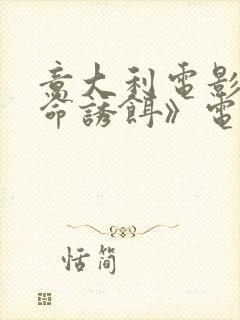 意大利電影
命誘餌》電
恬簡